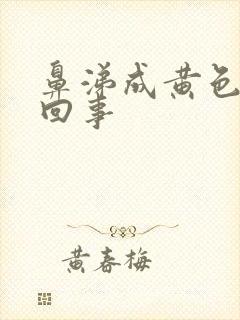 鼻涕成黄色
回事
黄春梅